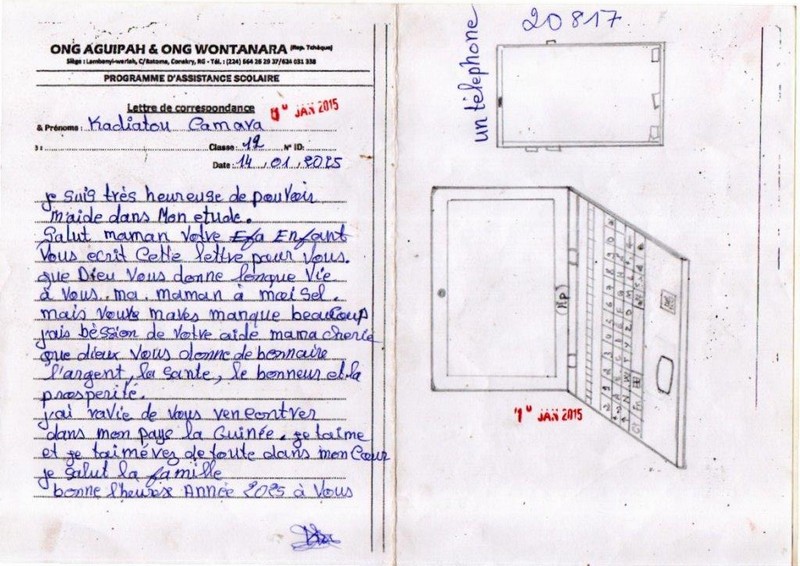 ONG AGUIPAH & ONG WONTANARA (Rep. Tchèque)
Siège : Lambanyi-wariah, C/Ratoma, Conakry, RG - Tél. : (224) 664 26 29 37/624 031 338
PROGRAMME D'ASSISTANCE SCOLAIRE
Lettre de correspondance
JAN 2015
& Prénoms : Kadiatou Camara
Classe : 12 N° ID:
Date : 14.01.2025
je suis très heureuse de pouvoir
m'aide dans Mon etude.
Salut maman Votre Enfant
Vous ecrit Cette lettre pour Vous.
que Dieu Vous donne longue Vie
à Vous. ma. maman à maisel.
mais Vous maves manque beaucoup
jais bèssion de Votre aide mama cherie
que dieux Vous donne de bonnaire
l'argent, la Sante, le bonneur et la
prosperité.
j'ai ravie de Vous rencontrer
dans mon pays la Guinée. je taime
et je taimévez de toute dans mon Cœur
je Salut la famille
bonne l'heurex Année 2025 à Vous
20817
un telephone
(Hp)
JAN 2015